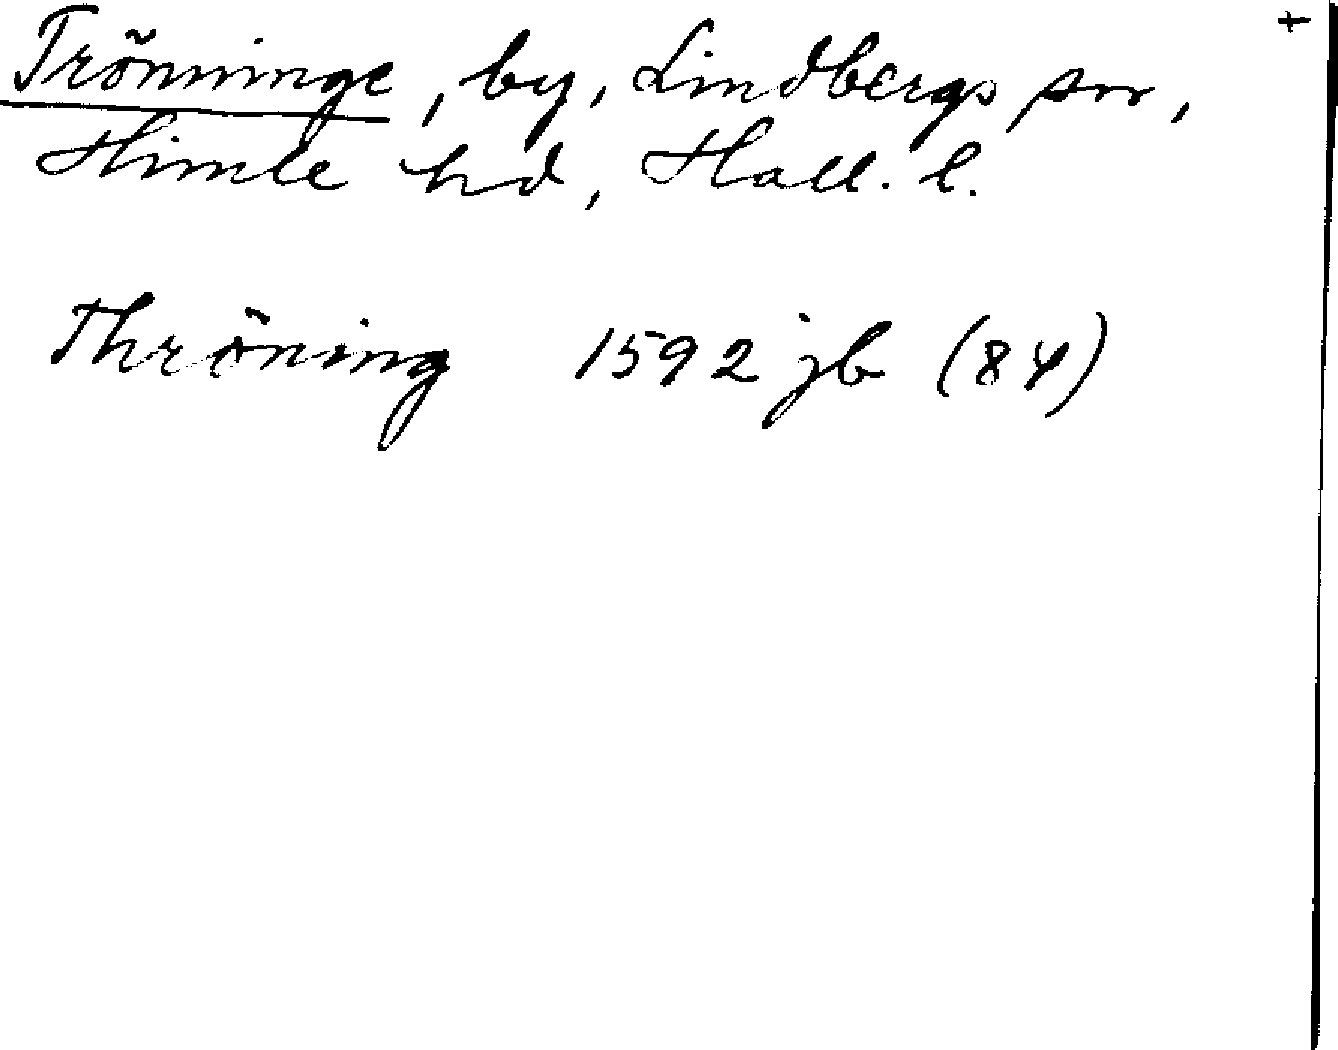 Trönninge, by, Lindbergs sn, +
Himle hd, Hall. l.
Thröning 1592 jb (84)